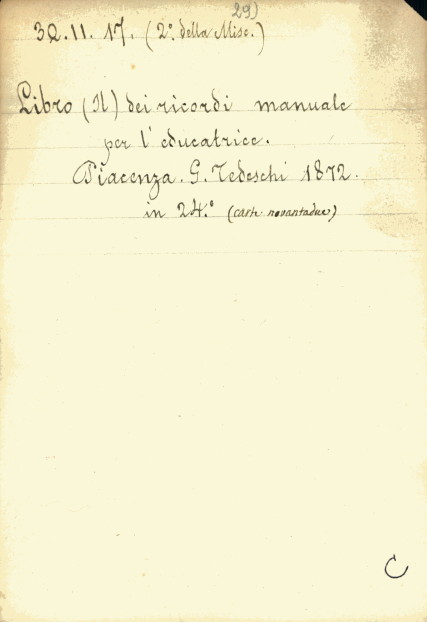 29)
32.11.17. (2º. della Misc.)
Libro (Il) dei ricordi manuale
per l'educatrice.
Piacenza. G. Tedeschi 1872.
in 24.º (carte novantadue)
C